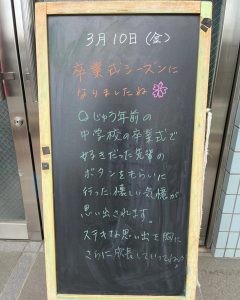 3月10日(金)
卒業式シーズンに
なりましたね
○じゅう年前の
中学校の卒業式で
好きだった先輩の
ボタンをもらいに
行った懐しい気憶が
思い出されます。
ステキな思い出を胸に
さらに成長していって